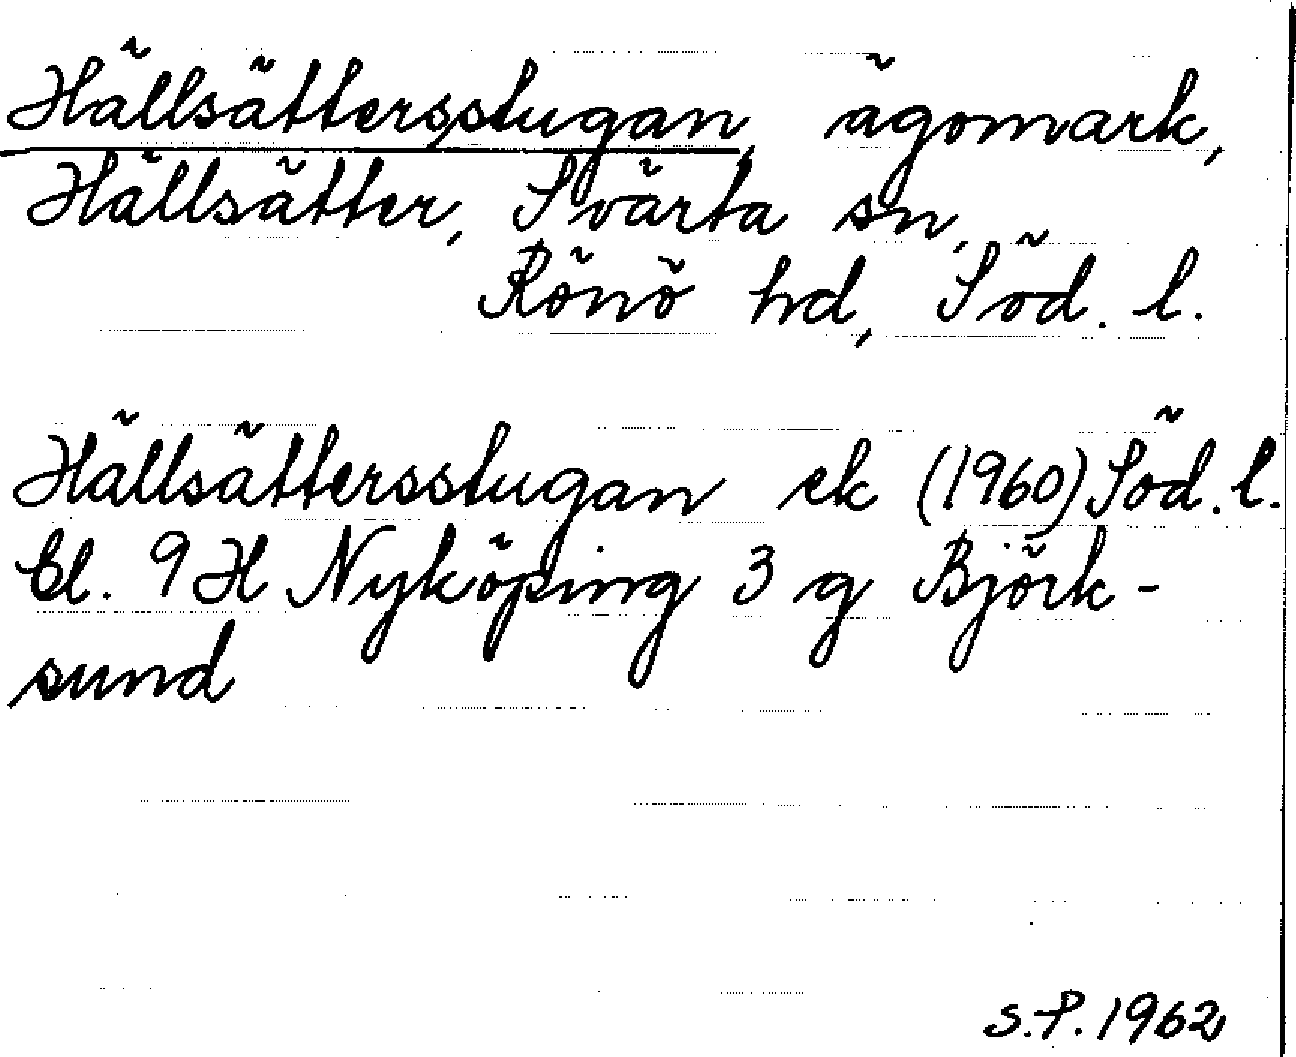 Hällsättersstugan, ägomark,
Hällsätter, Svärta sn,
Rönö hd, Söd. l.
Hällsättersstugan ek (1960) Söd. l.
bl. 9 H Nyköping 3 g Björk-
sund
S.P. 1962